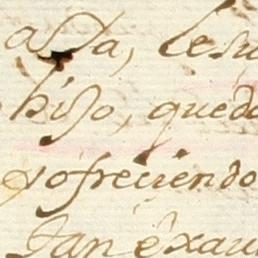 asta, lesu
hijo, queda
ofreciendo
tan exau